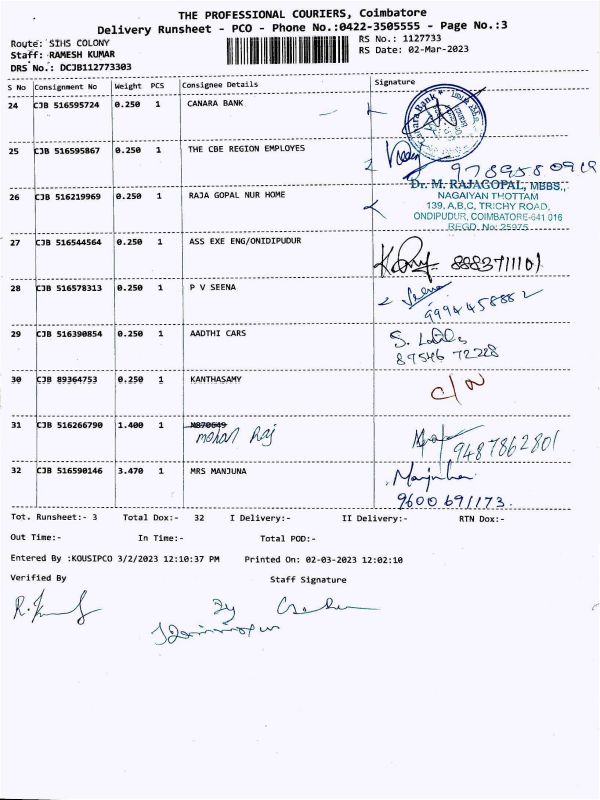 THE PROFESSIONAL COURIERS, Coimbatore
Delivery Runsheet - PCO - Phone No.:0422-3505555 - Page No.:3
Route: SIHS COLONY
RS No.: 1127733
Staff: RAMESH KUMAR
RS Date: 02-Mar-2023
DRS No.: DCJB112773303
S No Consignment No Weight PCS Consignee Details Signature
24 CJB 516595724 0.250 1 CANARA BANK
Canara Bank
25 CJB 516595867 0.250 1 THE CBE REGION EMPLOYES
9789580919
26 CJB 516219969 0.250 1 RAJA GOPAL NUR HOME
Dr. M. RAJAGOPAL, MBBS.,
NAGAIYAN THOTTAM
139, A,B,C, TRICHY ROAD,
ONDIPUDUR, COIMBATORE-641 016
REGD. No: 25975
27 CJB 516544564 0.250 1 ASS EXE ENG/ONIDIPUDUR
8883711101
28 CJB 516578313 0.250 1 P V SEENA
Veena
9994458882
29 CJB 516390854 0.250 1 AADTHI CARS
S.
89546 72228
30 CJB 89364753 0.250 1 KANTHASAMY
C/N
31 CJB 516266790 1.400 1 N870649
mohan Raj
9487862801
32 CJB 516590146 3.470 1 MRS MANJUNA
Manjuha
9600 691173.
Tot. Runsheet:- 3 Total Dox:- 32 I Delivery:- II Delivery:- RTN Dox:-
Out Time:- In Time:- Total POD:-
Entered By :KOUSIPCO 3/2/2023 12:10:37 PM Printed On: 02-03-2023 12:02:10
Verified By Staff Signature